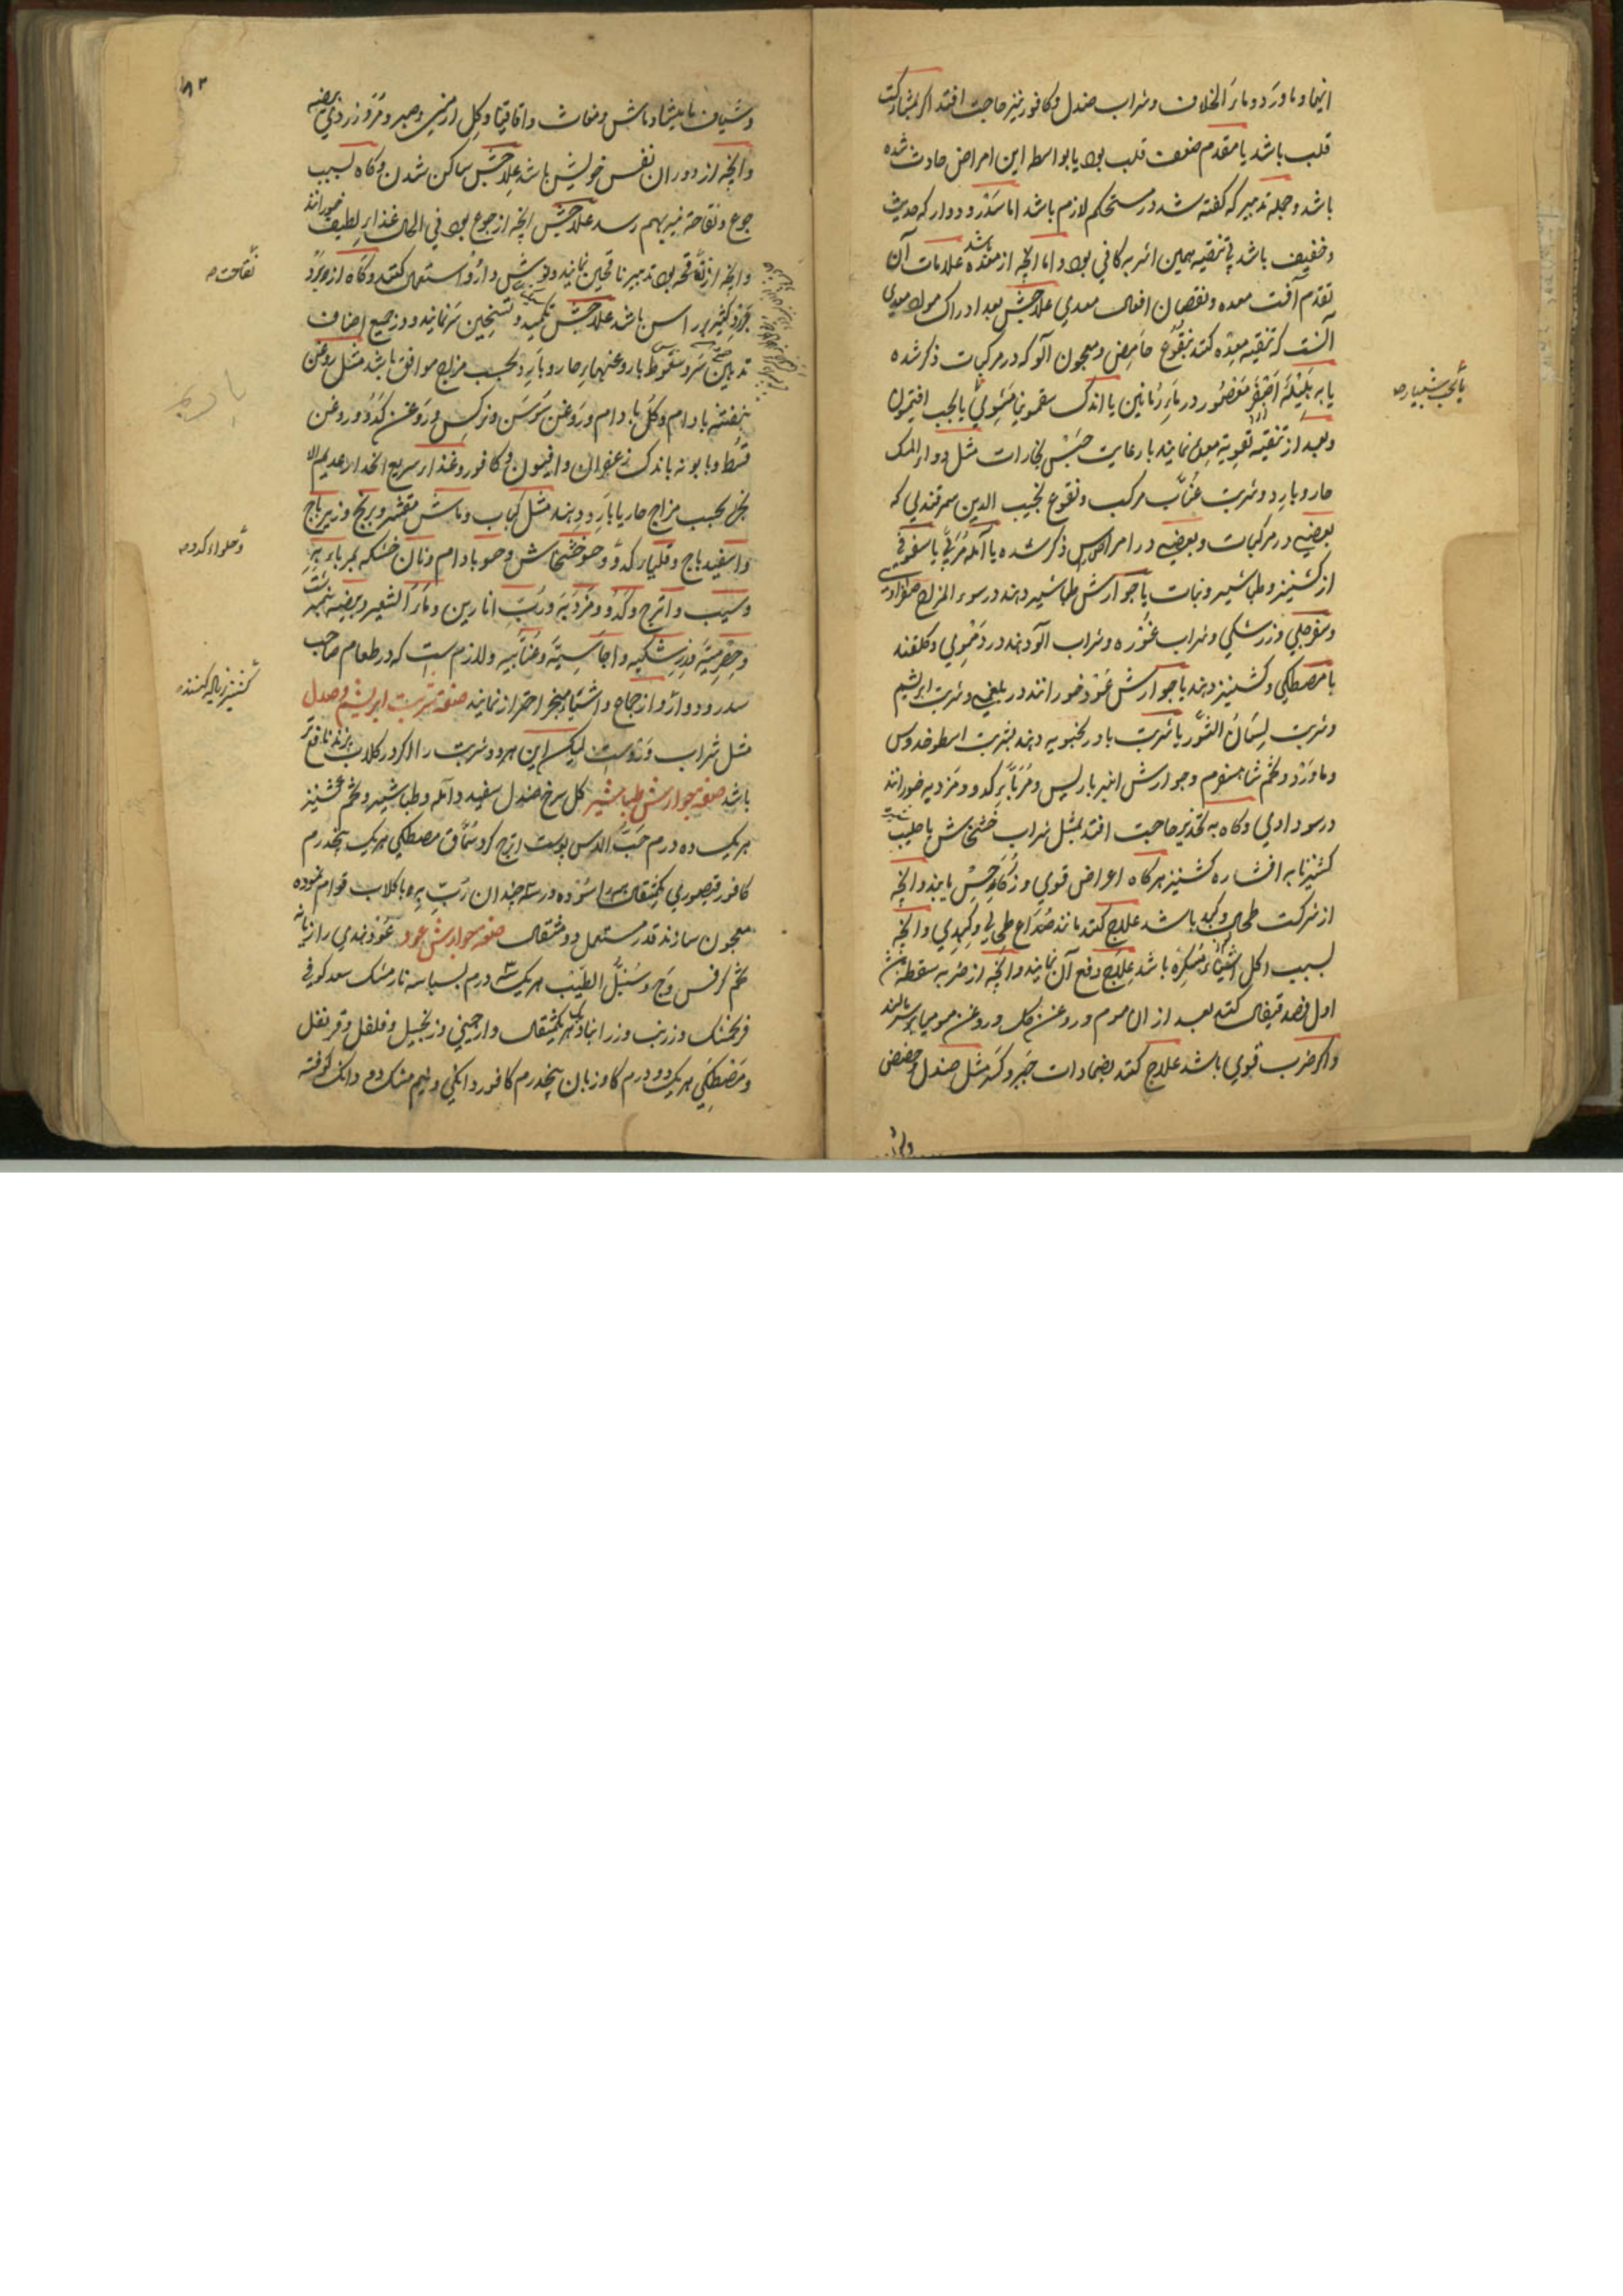 اینها و ماورد و ماء الخلاف و شراب صندل و کافور نیز حاجت افتد اگر بمشارکت
قلب باشد یا مقدم ضعف قلب بود یا بواسطه این امراض حادث شده
باشد و جمله تدبیر که گفته شد در مستحکم لازم باشد اما سدر و دوار که حدیث
و خفیف باشد بی تنقیه همین اشربه کافی بود و اما آنچه از معده باشد علامات آن
تقدم آفت معده و نقصان افعال معدی علاجش بعد ادراک مواد معدی
آنست که تنقیه معده کنند بنقوع حامض و معجون آلو که در مرکبات ذکر شده
یا به هلیله اصفر معصور در ماء رمانین یا اندک سقمونیا مشوی یا بحب افتیمون
یا بحب شبیار صح
و بعد از تنقیه تقویه معده نمایند با رعایت حبس بخارات مثل دواء المسک
حار و بارد و شربت عناب مرکب و نقوع نجیب الدین سمرقندی که
بعضی در مرکبات و بعضی در امراض ذکر شده یا آمله مربی یا سفوفی
از کشنیز و طباشیر و نبات یا جوارش طباشیر دهند در سوء المزاج صفراوی
و سفرجلی و زرشکی و شراب غوره و شراب آلو دهند در دموی و گلقند
با مصطکی و کشنیز دهند با جوارش عود خورانند در بلغمی و شربت ابریشم
و شربت لسان الثور یا شربت بادرنجبویه دهند بشربت اسطوخدوس
و ماورد و تخم شاهسفرم و جوارش انبرباریس و مربای کدو و مزدیه خورانند
در سوداوی و گاه به تخدیر حاجت افتد بمثل شراب خشخاش با حلیب
کشنیز نا به افشاره کشنیز هرگاه اعراض قوی و ذکاء حس یابند و آنچه
از شرکت طحال و کبد باشد علاج کنند مانند صداع طحالی و کبدی و آنچه
بسبب اکل اشیاء مسکره باشد علاج دفع آن نمایند و آنچه از ضربه سقطه باشد
اول فصد قیفال کنند بعد از آن موم و روغن گل و روغن مومیا بر سر نهند
و اگر ضرب قوی باشد علاج کنند بضمادات جبر و کسر مثل صندل و حضض
و شیاف مامیثا و ماش و مغاث و اقاقیا و گل ارمنی و صبر و مر و زردی بیضه
و آنچه از دوران نفس خویش باشد علاجش ساکن شدن و گاه بسبب
جوع و نقاحت نیز بهم رسد علاجش آنچه از جوع بود فی الحال غذاء لطیف خورانند
و آنچه از نقاهه بود تدبیر ناقهین نمایند و نوش دارو استعمال کنند و گاه از برد
نقاحت صح
مجرد کثیر در راس باشد علاجش تکمید و تسخین سر نمایند و در جمیع اصناف
تدهین سر و سعوط با روغنهاء حار و بارد بحسب مزاج موافق باشد مثل روغن
بنفشه بادام و گل بادام و روغن سوسن و نرگس و روغن کدو و روغن
قسط و بابونه باندک زعفران و افیون و کافور و غذاء سریع انحدار عدیم الا
بخره بحسب مزاج حار یا بارد دهند مثل کباب و ماش مقشر و برنج و زیرباج
و اسفیدباج و قلیاء کدو و حو خشخاش و حو بادام و نان خشکه بمرباء به
و حلواء کدو صح
و سیب و اترج و کدو و مزدیه و رب انارین و ماء الشعیر و بیضه نیمبرشت
و حصرمیه و زرشکیه و اجاصیه و عنابیه و لازم است که در طعام صاحب
کشنیز زیاده کنند
سدر و دوار و از جماع و اشیاء مبخر احتراز نمایند صفة شربت ابریشم و صندل
مثل شراب ورد است لیکن این هر دو شربت را اگر در گلاب پزند نافع تر
باشد صفه جوارش طباشیر گل سرخ صندل سفید و آمله و طباشیر و تخم کشنیز
هر یک ده درم حب الاس پوست اترج کرد سماق مصطکی هر یک پنجدرم
کافور قیصوری یکمثقال اسوده درسته چندان رب به با گلاب قوام نموده
معجون سازند قدر مستعمل دو مثقال صفه جوارش عود عود هندی رازیانه
تخم کرفس وج و سنبل الطیب هر یک ۳ درم بسباسه نارمشک سعد کوفی
فرنجمشک و زرنب و زرانباد هر یک یکمثقال دارچینی و زنجبیل و فلفل و قرنفل
و مصطکی هر یک دو درم گاوزبان پنجدرم کافور دانکی و نیم مشک دو دانک کوفته